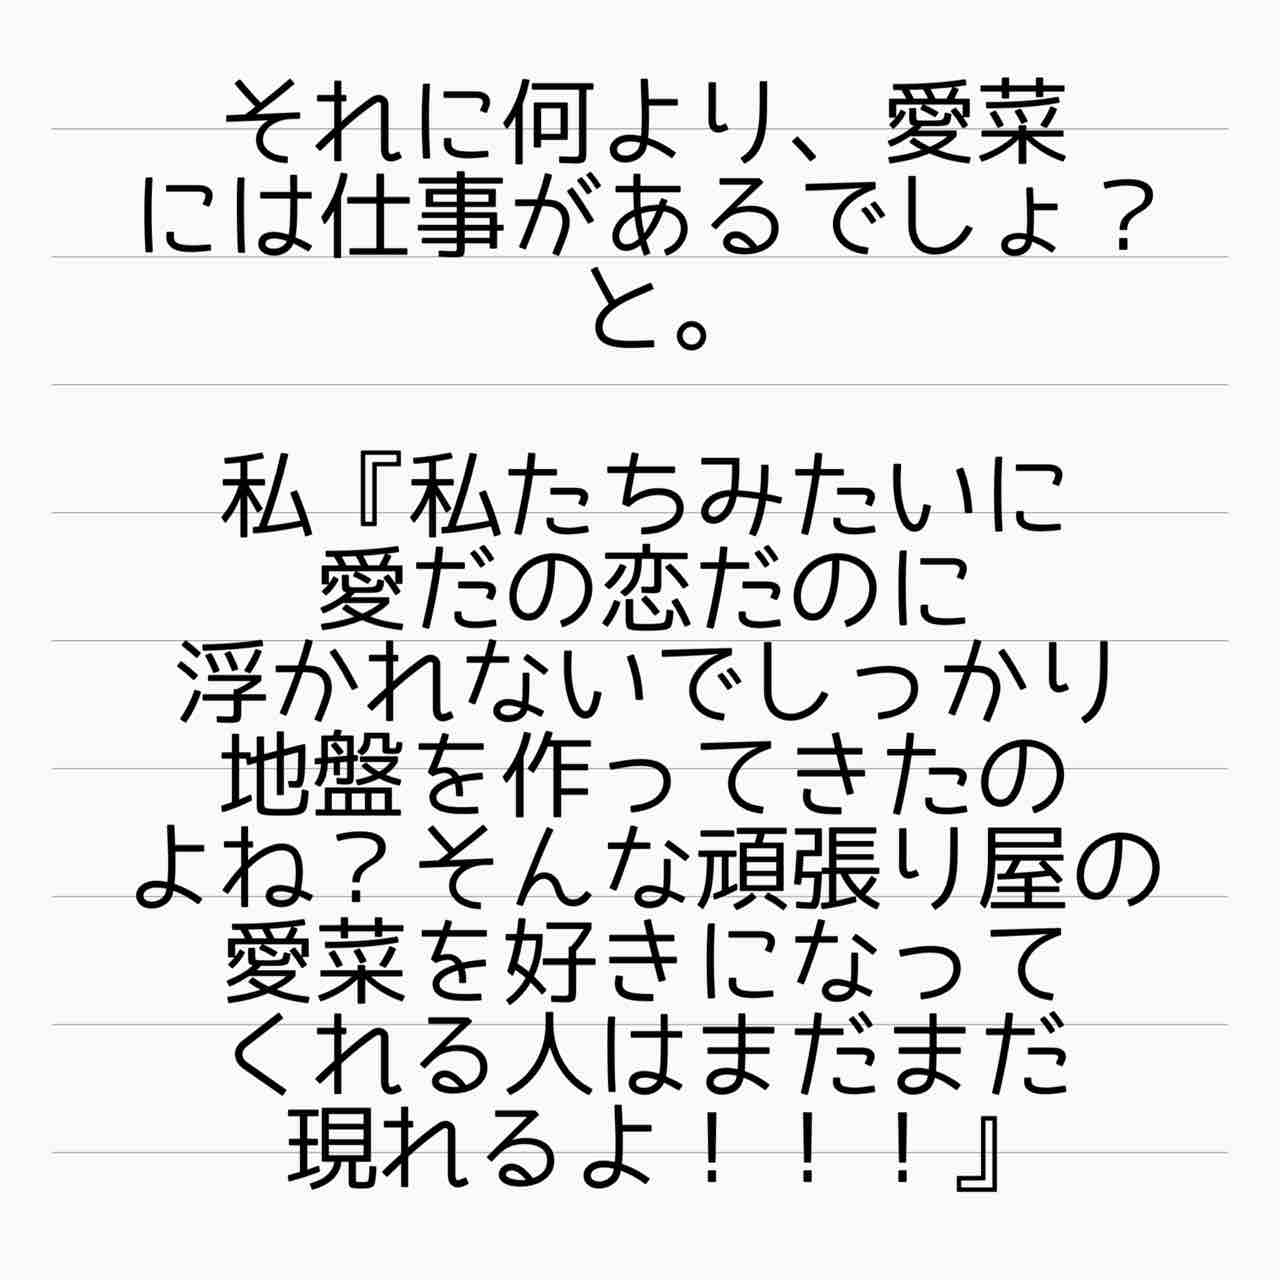 それに何より、愛菜
には仕事があるでしょ？
と。
私『私たちみたいに
愛だの恋だのに
浮かれないでしっかり
地盤を作ってきたの
よね？そんな頑張り屋の
愛菜を好きになって
くれる人はまだまだ
現れるよ！！！』